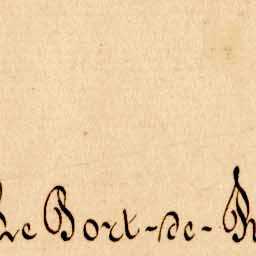 Le Port-de-